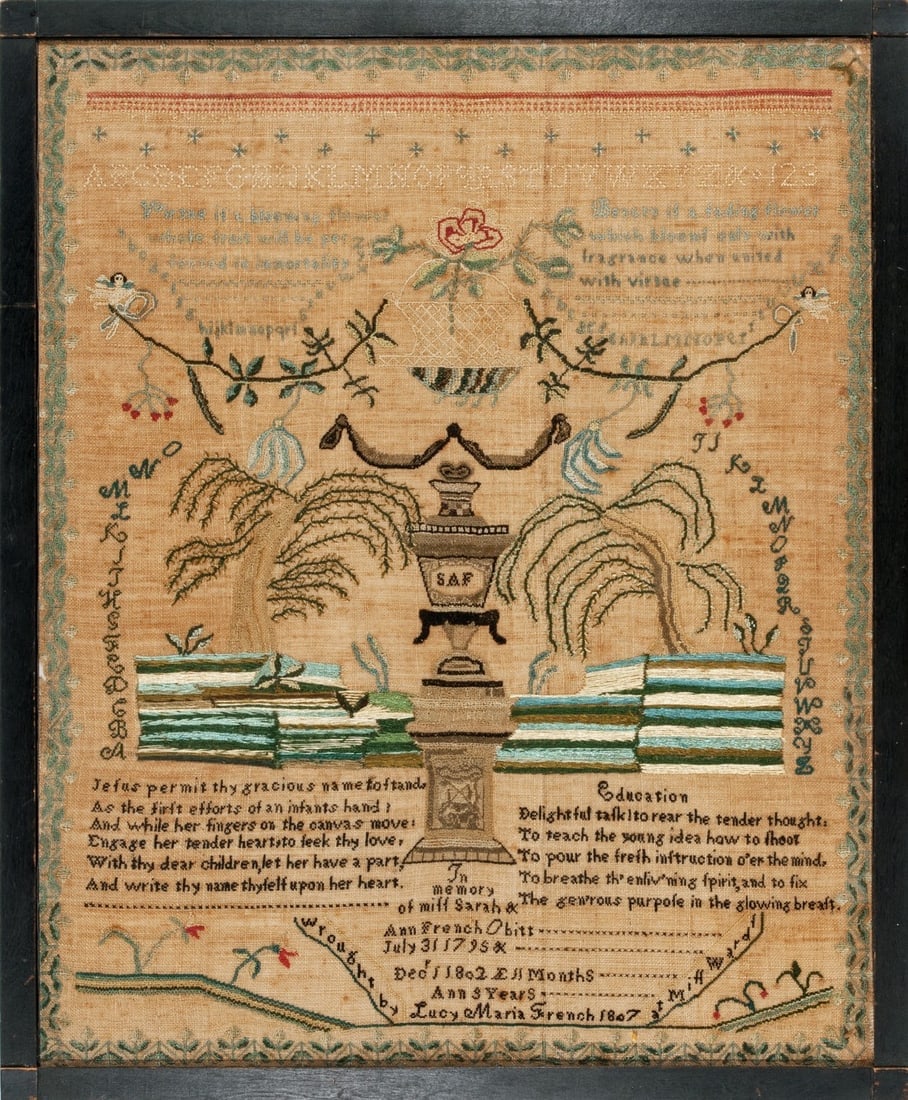 ABCDEFGHIJKLMNOPQRSTUVWXYZ& 123
Virtue is a blooming flower
whose fruit will be per
fected in immortality
Beauty is a fading flower
which blooms only with
fragrance when united
with virtue
hijklmnopqrſ
SAF
Jeſus permit thy gracious name toſtand,
As the firſt efforts of an infants hand;
And while her fingers on the canvas move:
Engage her tender heart, to ſeek thy love,
With thy dear children, let her have a part,
And write thy name thyſelf upon her heart.
Education
Delightful taſk! to rear the tender thought;
To teach the young idea how to ſhoot
To pour the freſh inſtruction o'er the mind,
To breathe th' enliv'ning ſpirit, and to fix
The gen'rous purpoſe in the glowing breaſt.
In
memory
of miſſ Sarah &
Ann French Obitt
July 31 1795 &
Decr 1 1802 Æ 11 Months
Ann 3 Years
Wrought by Lucy Maria French 1807 at Miſſ Wards